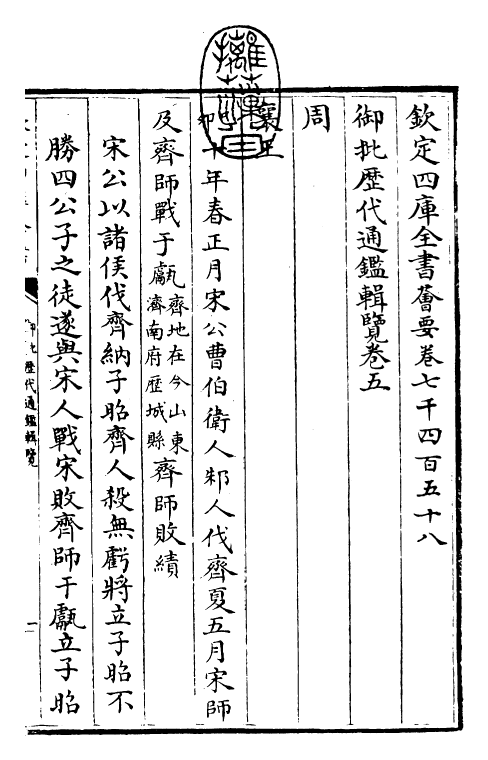 欽定四庫全書薈要卷七千四百五十八
御批歷代通鑑輯覽卷五
周
襄王
卯十年春正月宋公曹伯衛人邾人伐齊夏五月宋師
及齊師戰于甗齊地在今山東濟南府歷城縣齊師敗績
宋公以諸侯伐齊納子昭齊人殺無虧將立子昭不
勝四公子之徒遂與宋人戰宋敗齊師于甗立子昭
御批歷代通鑑輯覽
一